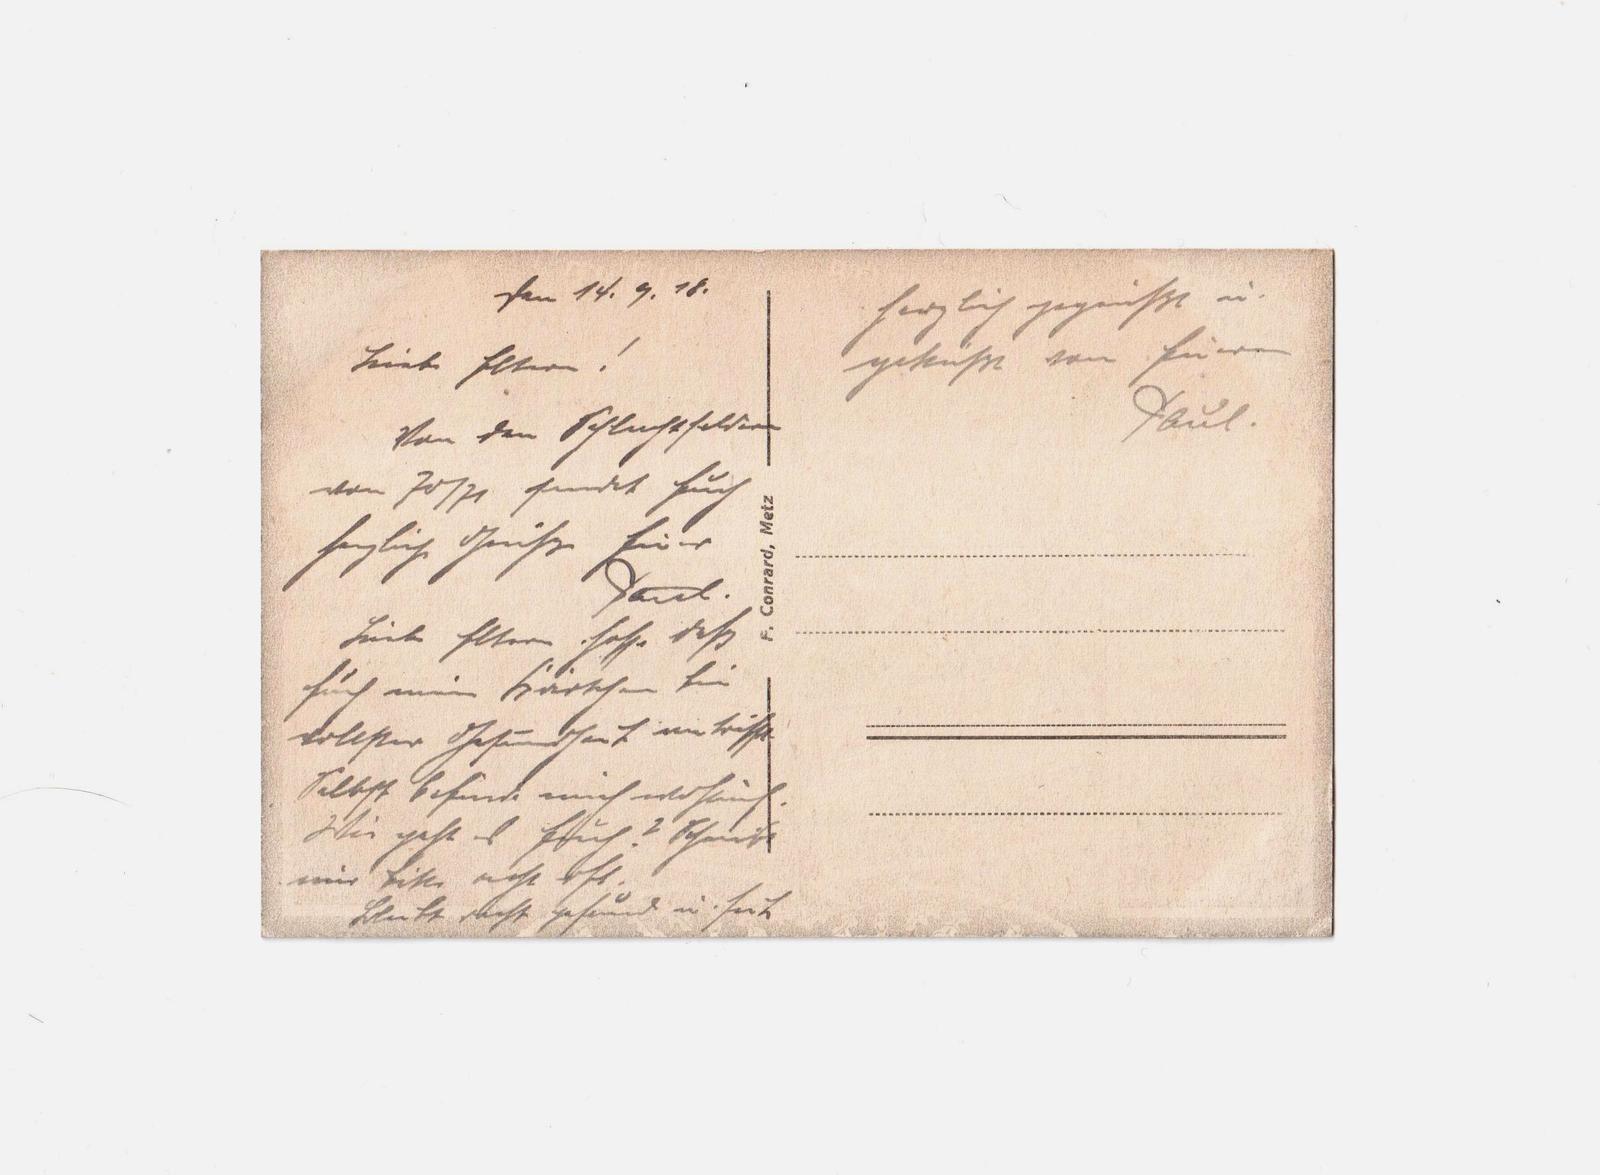 den 14. 9. 18.
Liebe Eltern!
Von den Schlachtfeldern
von 70/71 sendet Euch
herzliche Grüße Euer
Paul.
Liebe Eltern hoffe daß
Euch mein Kärtchen bei
vollster Gesundheit antrifft.
Selbst befinde mich wohlauf.
Wie geht es Euch? Schreibt
mir bitte recht oft.
Bleibt recht gesund u. seid
herzlich gegrüßt u.
geküßt von Euerm
Paul.
F. Conrard, Metz